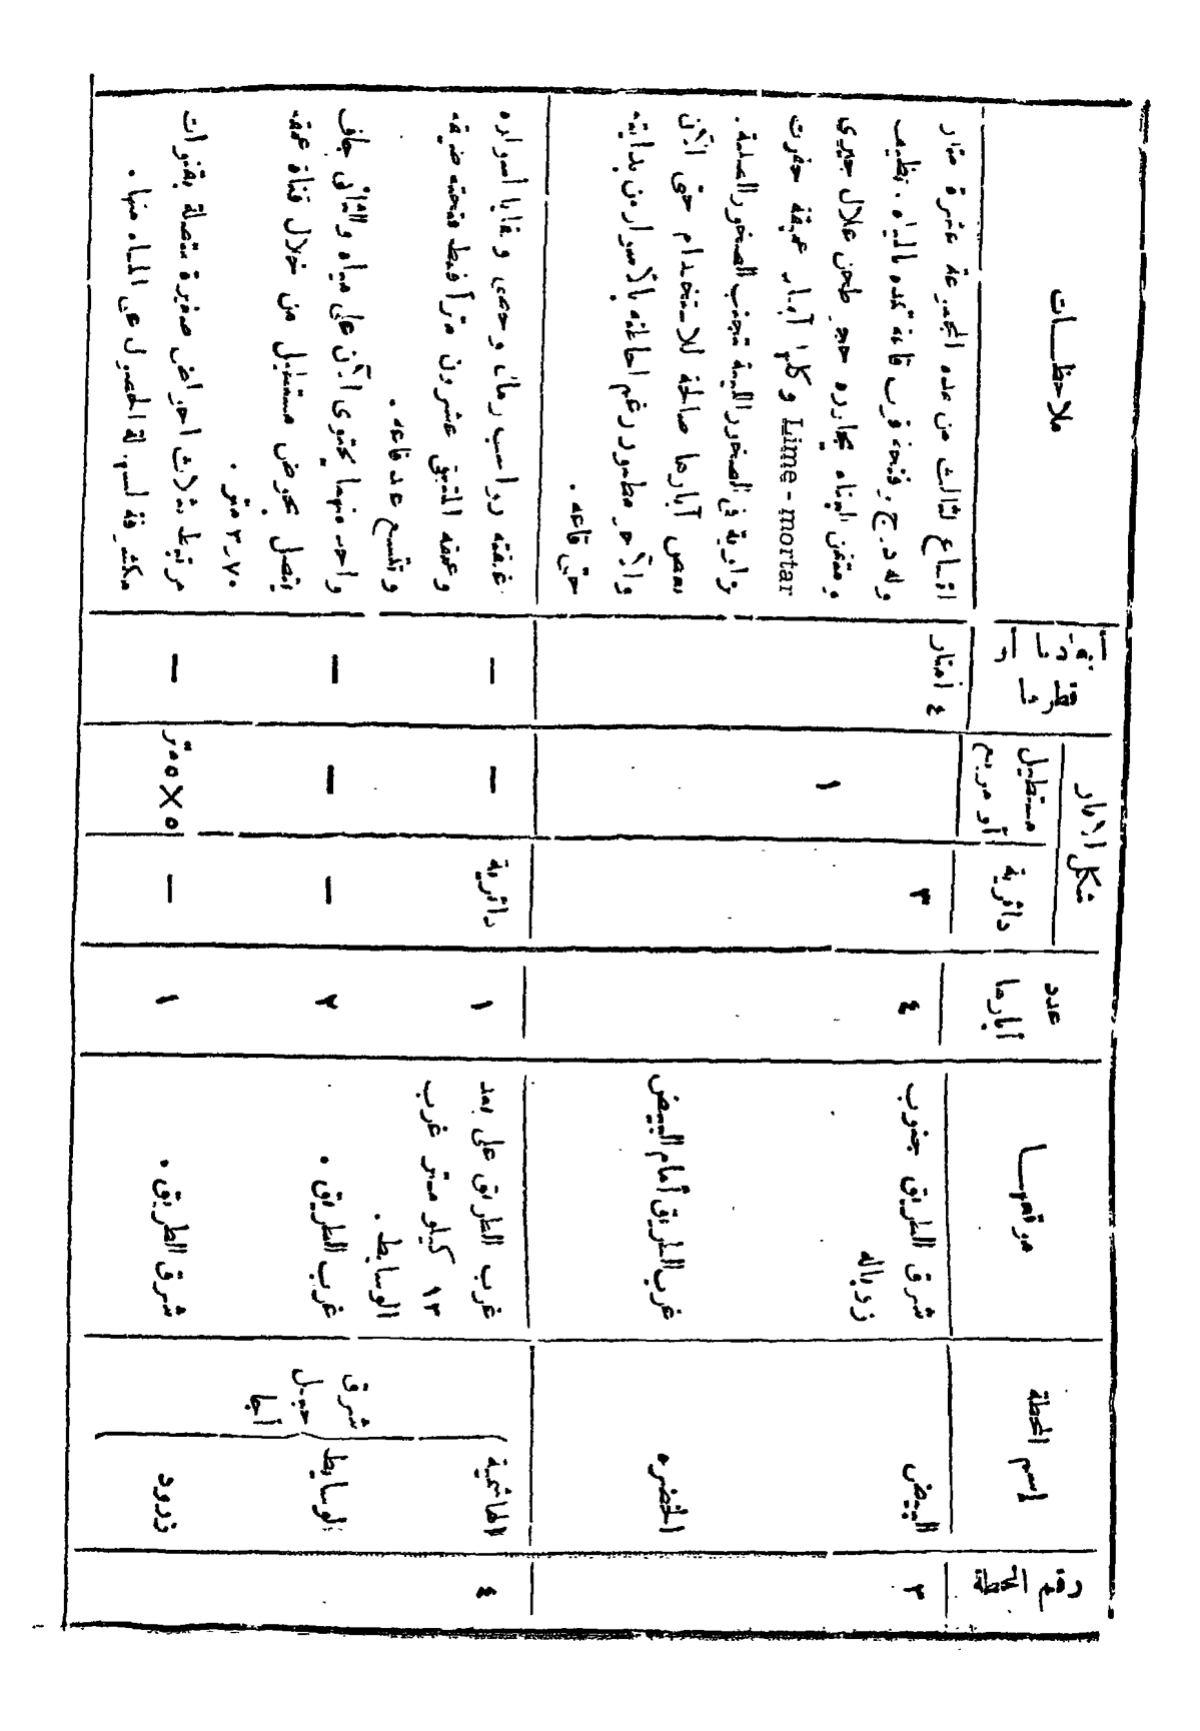 رقم المحطة
اسم المحطة
موقعهـــا
عدد
آبارها
شكل الآبار
دائرية
مستطيل
أو مربع
ملاحظـــات
٣
البيض
شرق الطريق جنوب
زوباله
٤
٣
١
٤ أمتار
اتساع الثالث من هذه المجموعة عشرة متار
وله د.ج. وفتحه قرب قاعه تمده بالمياه. نظيف
ومتقن البناء بجواره حجر طحن خلال جيرى
Lime - mortar وكلها آبار عميقة حفرت
بزاوية فى الصخور اللينة تجنب الصخور الصلبة.
الخضره
غرب الطريق أمام البيض
بعض آبارها صالحة للاستخدام حتى الآن
والآخر مطمور رغم احاطته بالأسوار من بدايته
حتى قاعه.
٤
الهاشمية
شرق
جبـل
أجا
غرب الطريق على بعد
١٣ كيلو متر غرب
الوسايط.
١
دائرية
—
—
عمقته رواسب رمال وحصى وبقايا أسواره
وعمقه المتبقى عشرون متراً فقط فتحته ضيقه
وتتسع عند قاعه.
الوسايط
غرب الطريق.
٢
—
—
—
واحد منهما يحتوى الآن على مياه والثانى جاف
يتصل بحوض مستطيل من خلال قناة عمقه
٣٫٧٠ متر.
زرود
شرق الطريق.
١
—
٥×٥ متر
—
مرتبط بثلاث احواض صغيرة متصلة بقنوات
مكشوفة لسهولة الحصول على الماء منها.